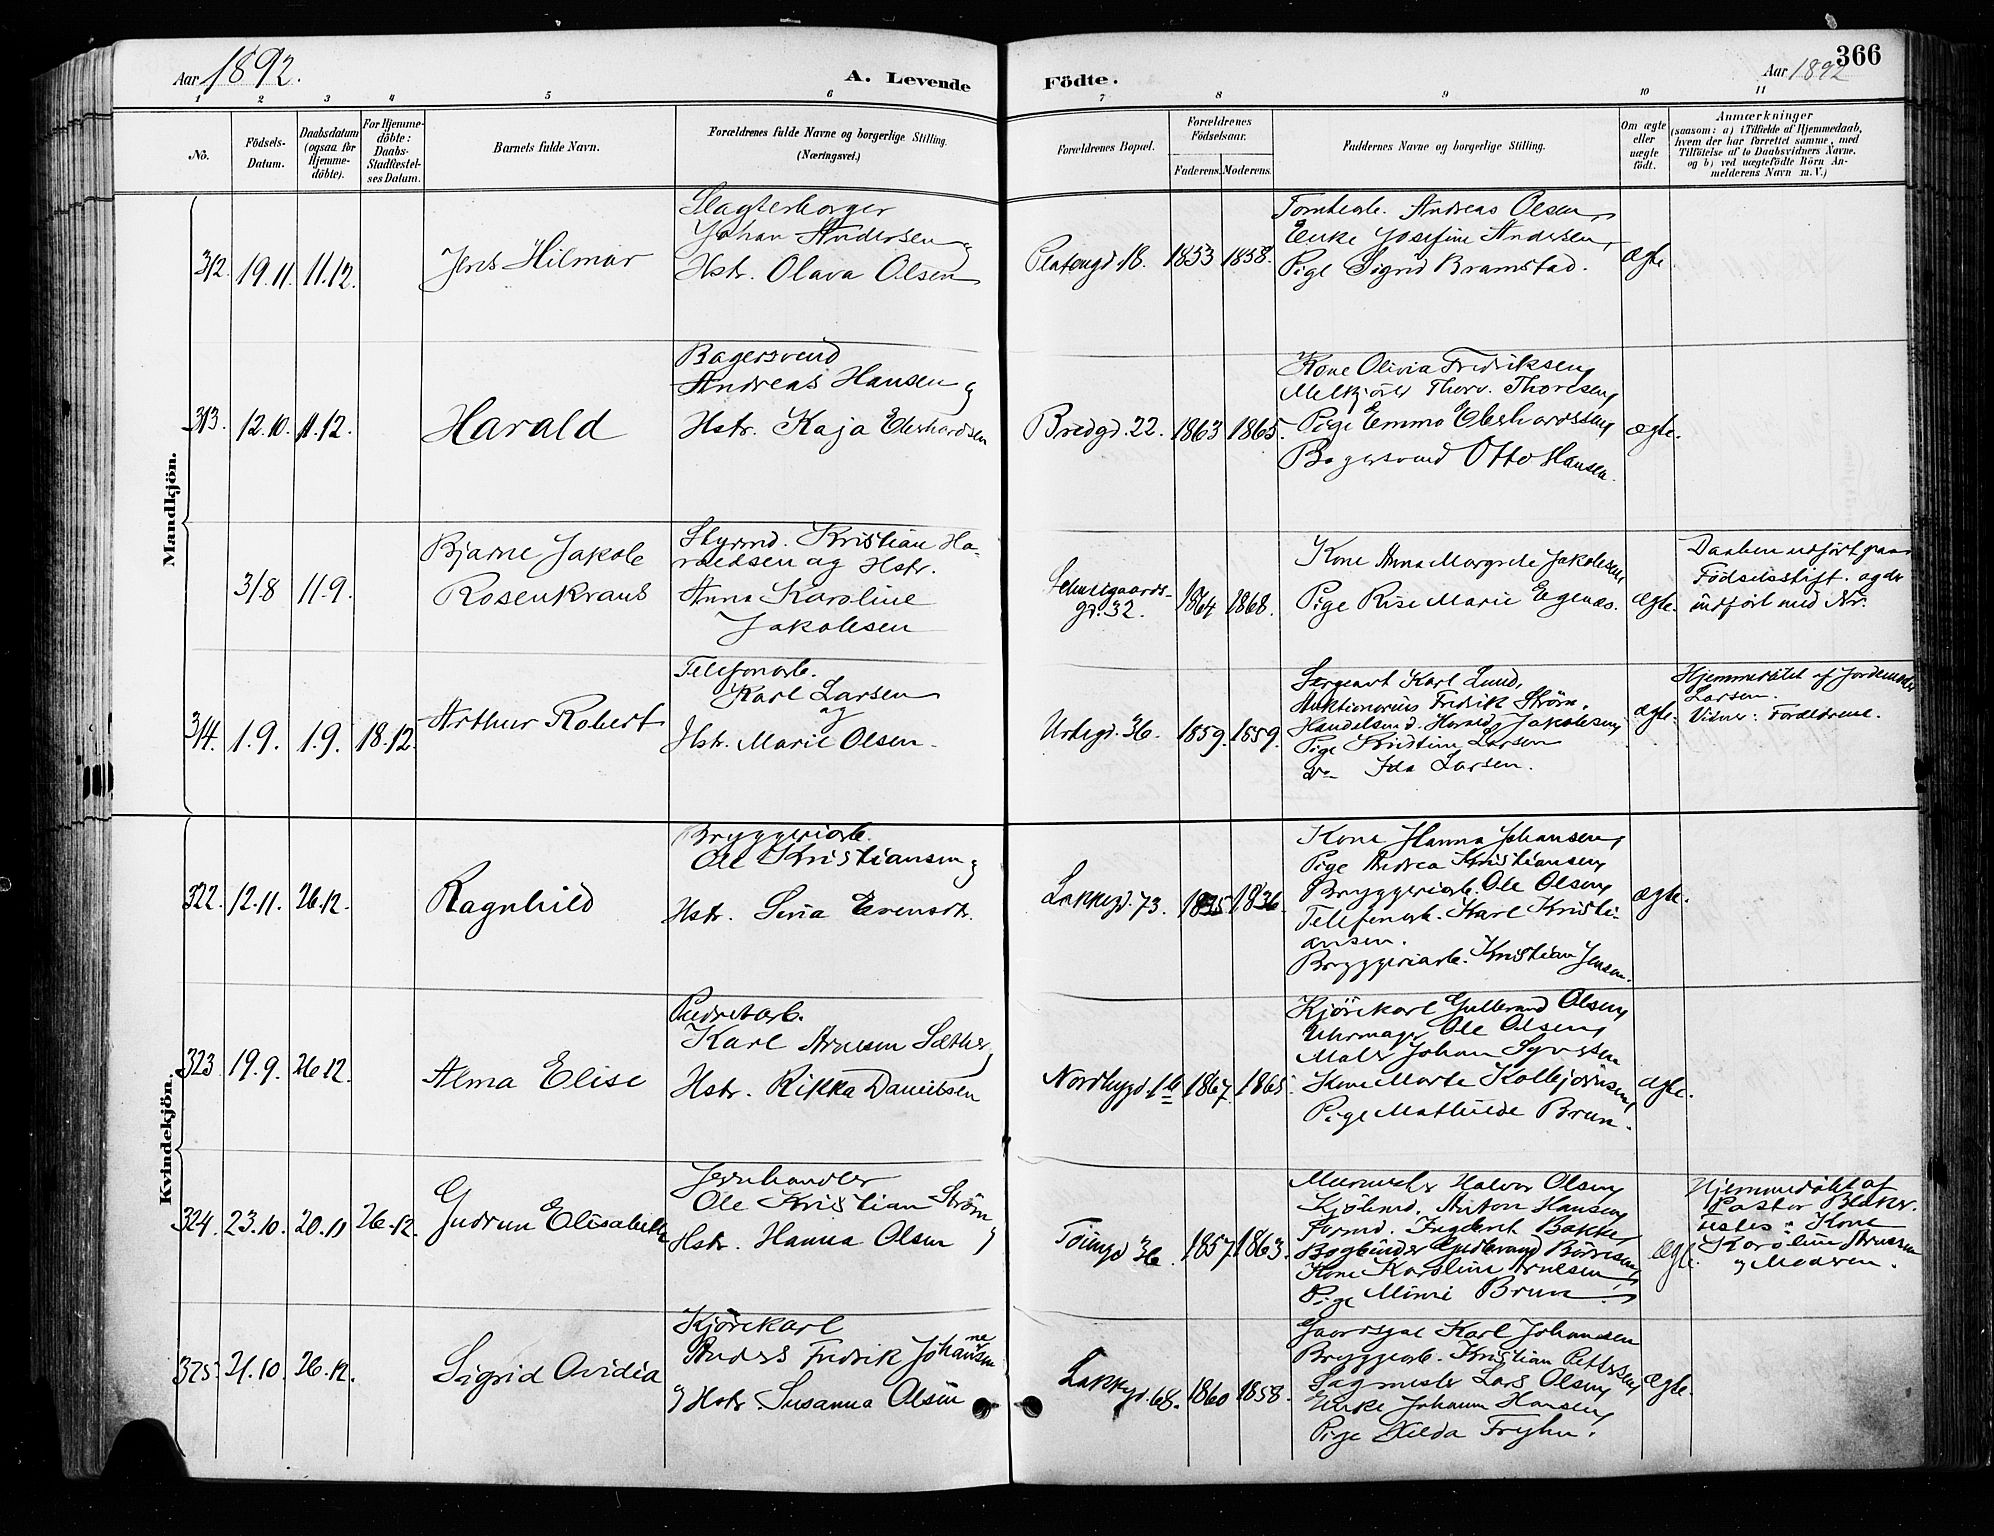 Aar 1892.
A. Levende
Födte.
Aar 1892
366
1 2 3 4 5 6 7 8 9 10 11
No.
Födsels-
Datum.
Daabsdatum
(ogsaa for
Hjemme-
döbte).
For Hjemme-
döbte:
Daabs-
Stadfestel-
ses Datum.
Barnets fulde Navn.
Forældrenes fulde Navne og borgerlige Stilling.
(Næringsvei.)
Forældrenes Bopæl.
Forældrenes
Födselsaar.
Faderens. Moderens.
Faddernes Navne og borgerlige Stilling.
Om ægte
eller
uægte
födt.
Anmærkninger
(saasom: a) i Tilfælde af Hjemmedaab,
hvem der har forrettet samme, med
Tilföielse af to Daabsvidners Navne,
og b) ved uægtefödte Börn An-
melderens Navn m. V.)
Mandkjön.
312. 19.11. 11.12.
Jens Hilmar
Slagterborger
Johan Andersen
Hstr. Olava Olsen
Platougd. 18. 1853 1858.
Andreas Olsen,
Enke Josefine Andersen,
Pige Sigrid Bramstad.
ægte.
313. 12.10. 11.12.
Harald
Bagersvend
Andreas Hansen og
Hstr. Kaja Eberhardsen
Bredgd. 22. 1863 1865.
Kone Olivia Fredriksen,
Melkjöer Thorv. Thoresen,
Pige Emma Eberhardsen,
Bagersvend Otto Hansen.
ægte.
31/8 11.9.
Bjarne Jakob
Rosenkrans
Styrmd. Kristian Ha-
raldsen og Hstr.
Anna Karoline
Jakobsen
Schweigaards-
gd. 32. 1864 1868.
Kone Anna Margrete Jakobsen,
Pige Rise Marie Egenæs.
ægte.
Daaben udført paa
Födselsstift. og der
indfört med Nr.
314. 1.9. 1.9. 18.12.
Arthur Robert
Telefonarb.
Karl Larsen
og
Hstr. Marie Olsen.
Urtegd. 36. 1859. 1859.
Sergeant Karl Lund,
Auktionarius Fredrik Ström,
Handelsmd. Harald Jakobsen,
Pige Kristine Larsen
do Ida Larsen.
ægte.
Hjemmedöbt af Jordemoder
Larsen.
Vidner: Forældrene.
Kvindekjön.
322. 12.11. 26.12.
Ragnhild
Bryggeriarb.
Ole Kristiansen og
Hstr. Sina Evensdr.
Lakkegd. 73. 1836.
Kone Hanna Johansen,
Pige Andrea Kristiansen,
Bryggeriarb. Ole Olsen,
Telefonarb. Karl Kristi-
ansen.
Bryggeriarb. Kristian Jensen.
ægte.
323. 19.9. 26.12.
Alma Elise
Karl Arnesen Sæther,
Hstr. Rikka Danielsen
Nordbygd. 1b 1867. 1865.
Kjörekarl Gulbrand Olsen,
Uhrmager Ole Olsen,
Maler Johan Syversen
Kone Marte Kolbjörnsen,
Pige Mathilde Brun.
ægte.
324. 23.10. 20.11 26.12.
Gudrun Elisabeth
Jernhandler
Ole Kristian Ström
og
Hstr. Hanna Olsen
Töiengd 36. 1857. 1863.
Murmester Halvor Olsen,
Kjöbmd. Anton Hansen,
Formd. Ingebret Bakke,
Bogbinder Gudbrand Börresen,
Kone Karoline Arnesen,
Pige Mimi Brun.
ægte.
Hjemmedöbt af
Pastor Blaker.
Testes: Kone
Karoline Arnesen
og Moderen.
325. 21.10. 26.12.
Sigrid Ovidia
Kjörekarl
Anders Fredrik Johannesen
og Hstr. Susanna Olsen
Lakkegd. 68. 1860 1858.
Gaardsgut Karl Johansen
Bryggerarb. Kristian Pettersen,
Sagmester Lars Olsen,
Enke Johanne Hansen,
Pige Hilda Fryhn.
ægte.